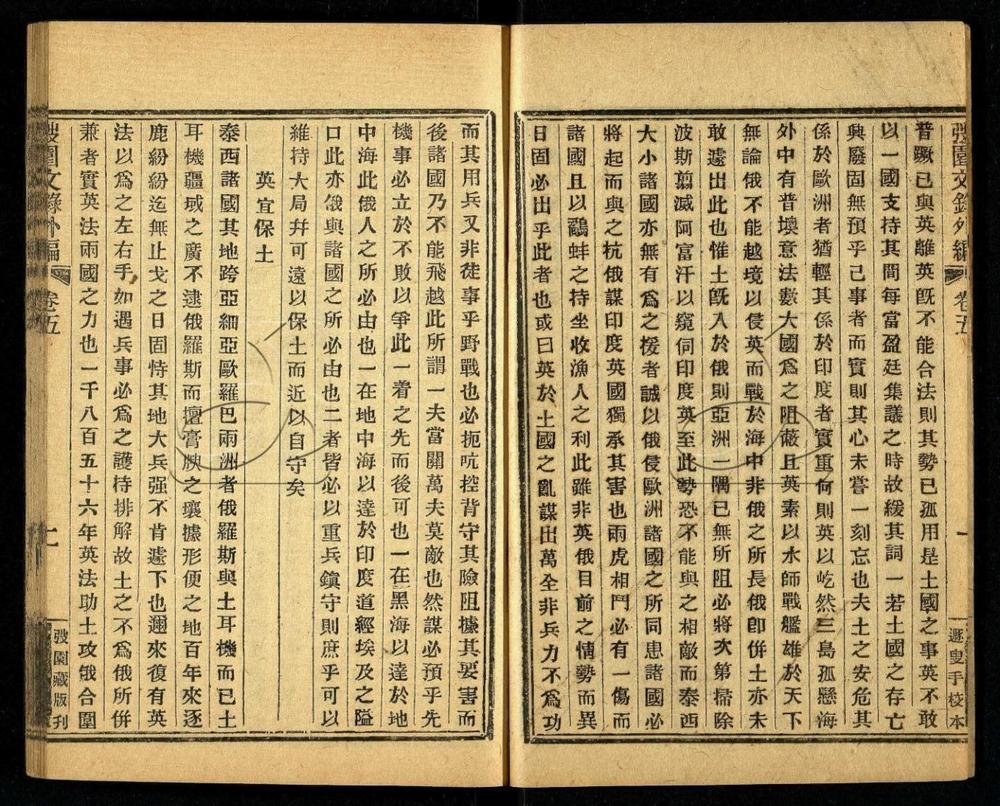 弢園文錄外編 卷五 一 遯叟手校本
普蹶已與英離英旣不能合法則其勢已孤用是土國之事英不敢
以一國支持其間每當盈廷集議之時故緩其詞一若土國之存亡
興廢固無預乎己事者而實則其心未嘗一刻忘也夫土之安危其
係於歐洲者猶輕其係於印度者實重何則英以屹然三島孤懸海
外中有普壞意法數大國爲之阻蔽且英素以水師戰艦雄於天下
無論俄不能越境以侵英而戰於海中非俄之所長俄卽併土亦未
敢遽出此也惟土旣入於俄則亞洲一隅已無所阻必將次第掃除
波斯翦滅阿富汗以窺伺印度英至此勢恐不能與之相敵而泰西
大小諸國亦無有爲之援者誠以俄侵歐洲諸國之所同患諸國必
將起而與之抗俄謀印度英國獨承其害也兩虎相鬥必有一傷而
諸國且以鷸蚌之持坐收漁人之利此雖非英俄目前之情勢而異
日固必出乎此者也或曰英於土國之亂謀出萬全非兵力不爲功
而其用兵又非徒事乎野戰也必扼吭控背守其險阻據其要害而
後諸國乃不能飛越此所謂一夫當關萬夫莫敵也然謀必預乎先
機事必立於不敗以爭此一着之先而後可也一在黑海以達於地
中海此俄人之所必由也一在地中海以達於印度道經埃及之隘
口此亦俄與諸國之所必由也二者皆必以重兵鎮守則庶乎可以
維持大局幷可遠以保土而近以自守矣
英宜保土
泰西諸國其地跨亞細亞歐羅巴兩洲者俄羅斯與土耳機而已土
耳機疆域之廣不逮俄羅斯而擅膏腴之壤據形便之地百年來逐
鹿紛紛迄無止戈之日固恃其地大兵强不肯遽下也邇來復有英
法以爲之左右手如遇兵事必爲之護持排解故土之不爲俄所併
兼者實英法兩國之力也一千八百五十六年英法助土攻俄合圍
弢園文錄外編 卷五 弢園藏版刊